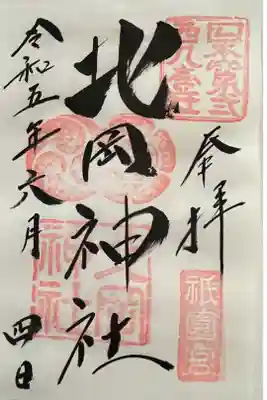 奉拝
祇園宮
北岡神社
北岡
神社
令和五年六月四日